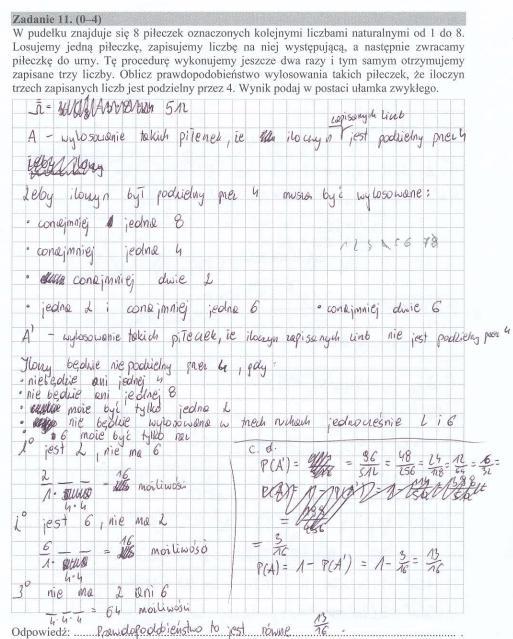 Zadanie 11. (0–4)
W pudełku znajduje się 8 piłeczek oznaczonych kolejnymi liczbami naturalnymi od 1 do 8.
Losujemy jedną piłeczkę, zapisujemy liczbę na niej występującą, a następnie zwracamy
piłeczkę do urny. Tę procedurę wykonujemy jeszcze dwa razy i tym samym otrzymujemy
zapisane trzy liczby. Oblicz prawdopodobieństwo wylosowania takich piłeczek, że iloczyn
trzech zapisanych liczb jest podzielny przez 4. Wynik podaj w postaci ułamka zwykłego.
Ω̅ = 512
zapisanych liczb
A - wylosowanie takich piłeczek, że iloczyn jest podzielny przez 4
Żeby iloczyn był podzielny przez 4 muszą być wylosowane:
• conajmniej jedna 8
• conajmniej jedna 4
1 2 3 4 5 6 7 8
• conajmniej dwie 2
• jedna 2 i conajmniej jedna 6 • conajmniej dwie 6
A' - wylosowanie takich piłeczek, że iloczyn zapisanych liczb nie jest podzielny przez 4
Iloczyn będzie niepodzielny przez 4, gdy:
• nie będzie ani jednej 4
• nie będzie ani jednej 8
• może być tylko jedna 2
• nie będzie wylosowana w trzech ruchach jednocześnie 2 i 6
• 6 może być tylko raz
1° jest 2, nie ma 6
2/1 · _ _ = 16 możliwości
4·4
2° jest 6, nie ma 2
6/1 · _ _ = 16 możliwości
4·4
3° nie ma 2 ani 6
4·4·4 = 64 możliwości
c.d.
P(A') = = 96/512 = 48/256 = 24/128 = 12/64 = 6/32 =
= 3/16
P(A) = 1 - P(A') = 1 - 3/16 = 13/16
Odpowiedź: Prawdopodobieństwo to jest równe 13/16.